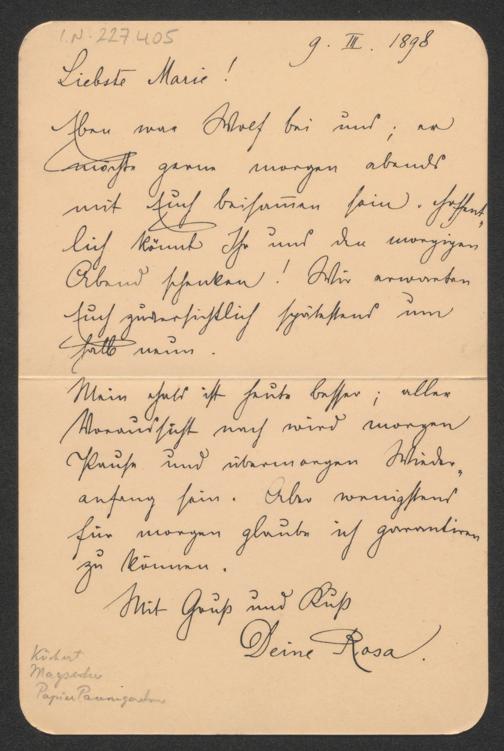 I.N. 227.405
9. III. 1898
Liebste Marie!
Eben war Wolf bei uns; er
möchte gerne morgen abends
mit Euch beisam̅en sein. Hoffent„
lich könnt Ihr uns den morgigen
Abend schenken! Wir erwarten
Euch zuversichtlich spätestens um
halb neun.
Mein Hals ist heute besser; aller
Voraussicht nach wird morgen
Pause und übermorgen Wieder„
anfang sein. Aber wenigstens
für morgen glaube ich garantiren
zu können.
Mit Gruß und Kuß
Deine Rosa.
Köchert
Mayseder
Papier Paumgarten